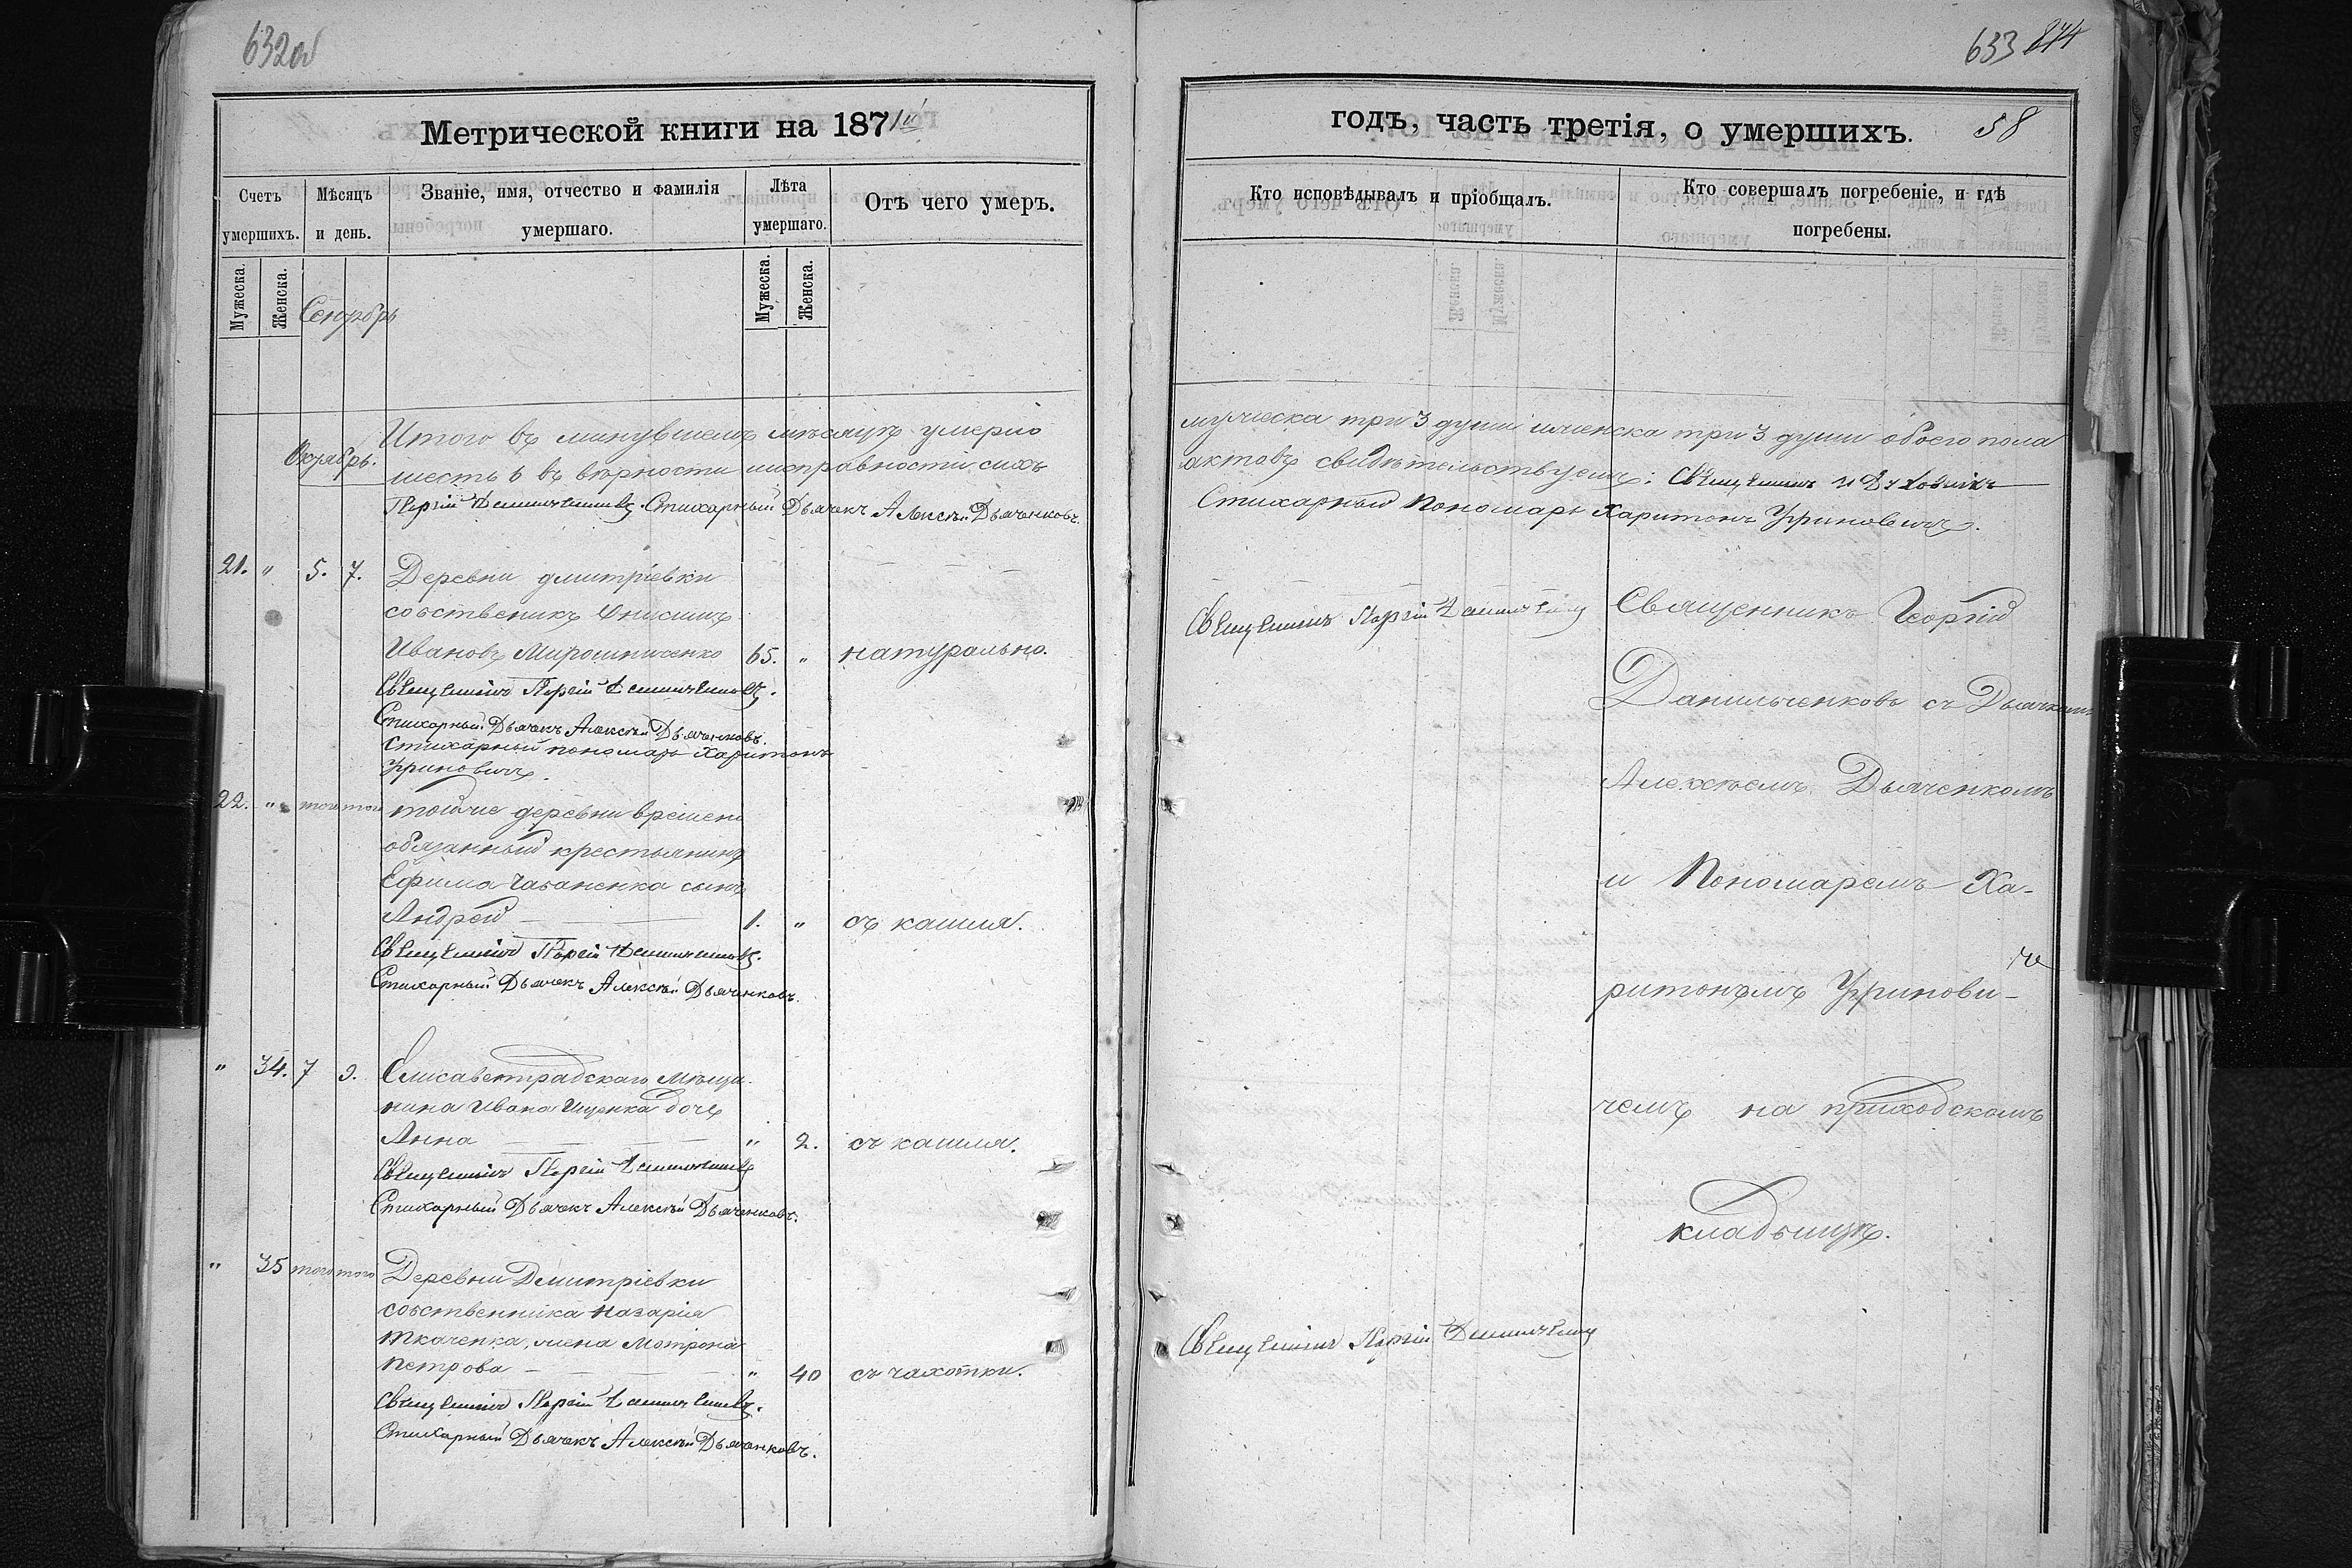 632об
Метрической книги на 1871й
Счетъ умершихъ.
Мѣсяцъ и день.
Званіе, имя, отчество и фамилія умершаго.
Лѣта умершаго.
Отъ чего умеръ.
Мужеска.
Женска.
Мужеска.
Женска.
Сентябрь
Итого въ минувшемъ мѣсяцѣ умерло
Октябрь.
шесть 6 въ вѣрности и исправности сихъ
Георгій Данильченковъ. Стихарный Дьячекъ Алексѣй Дьяченковъ.
21. " 5. 7. Деревни дмитріевки
собственикъ Онисимъ
Ивановъ Мирошниченко 65. " натурально.
Священникъ Георгій Данильченковъ.
Стихарный Дьячекъ Алексѣй Дьяченковъ.
Стихарный пономарь Харитонъ
Уриновичъ.
22. " того того тойже деревни времено
обязанный крестьянинъ
Ефима Чабаненка сынъ
Андрей 1. " съ кашля.
Священникъ Георгій Данильченковъ.
Стихарный Дьячекъ Алексѣй Дьяченковъ.
" 34. 7 9. Елисаветградскаго мѣща-
нина Ивана Ищенка дочь
Анна " 2. съ кашля.
Священникъ Георгій Данильченковъ
Стихарный Дьячекъ Алексѣй Дьяченковъ.
" 35 того того Деревни Дмитріевки
собственника Назарія
Ткаченка, жена Мотрона
Петрова " 40 съ чахотки.
Священникъ Георгій Данильченковъ.
Стихарный Дьячекъ Алексѣй Дьяченковъ.
633 874
годъ, часть третія, о умершихъ. 58
Кто исповѣдывалъ и пріобщалъ.
Кто совершалъ погребеніе, и гдѣ погребены.
мужеска три 3 души и женска три 3 души обоего пола
актовъ свидѣтельствуемъ: Священникъ и Духовникъ
Стихарный Пономарь Харитонъ Уриновичъ.
Священникъ Георгій Данильченковъ
Священникъ Георгій
Данильченковъ съ Дьячкомъ
Алексѣемъ Дьяченкомъ
и Пономаремъ Ха-
ритономъ Уринови-
чемъ на приходскомъ
кладбищѣ.
Священникъ Георгій Данильченковъ